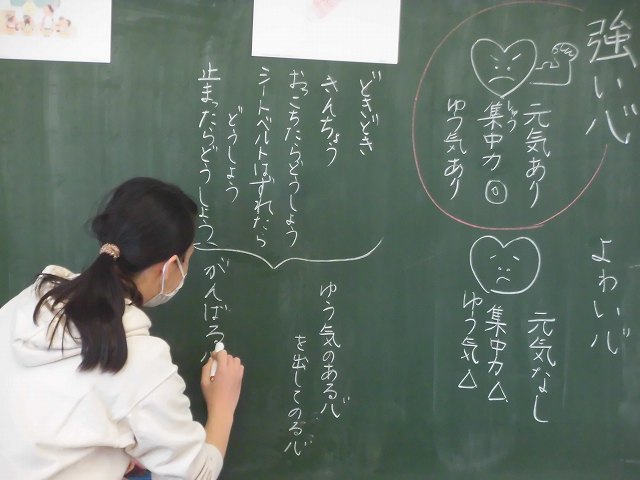 強い心
元気あり
集中力◎
しゅう
ゆう気あり
よわい心
元気なし
集中力△
ゆう気△
どきどき
きんちょう
おっこちたらどうしよう
シートベルトはずれたら
どうしよう
止まったらどうしよう
ゆう気のある心
を出してのる心
がんばる心